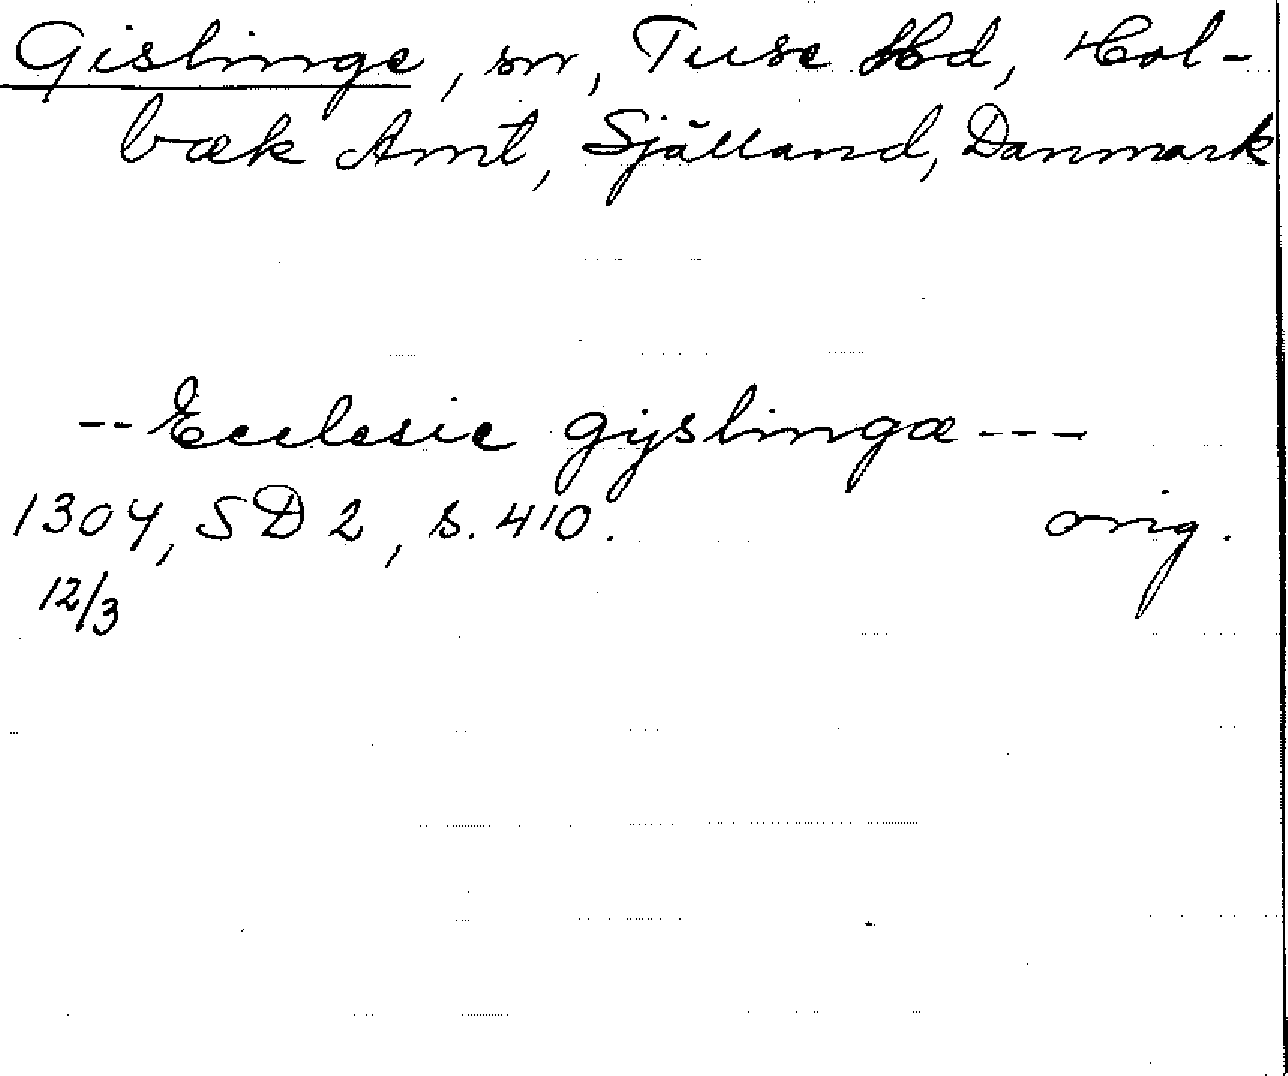 Gislinge, sn, Tuse Hd, Hol-
bæk Amt, Själland, Danmark
-- Ecclesie gijslingæ ---
1304, SD 2, s. 410. orig.
12/3